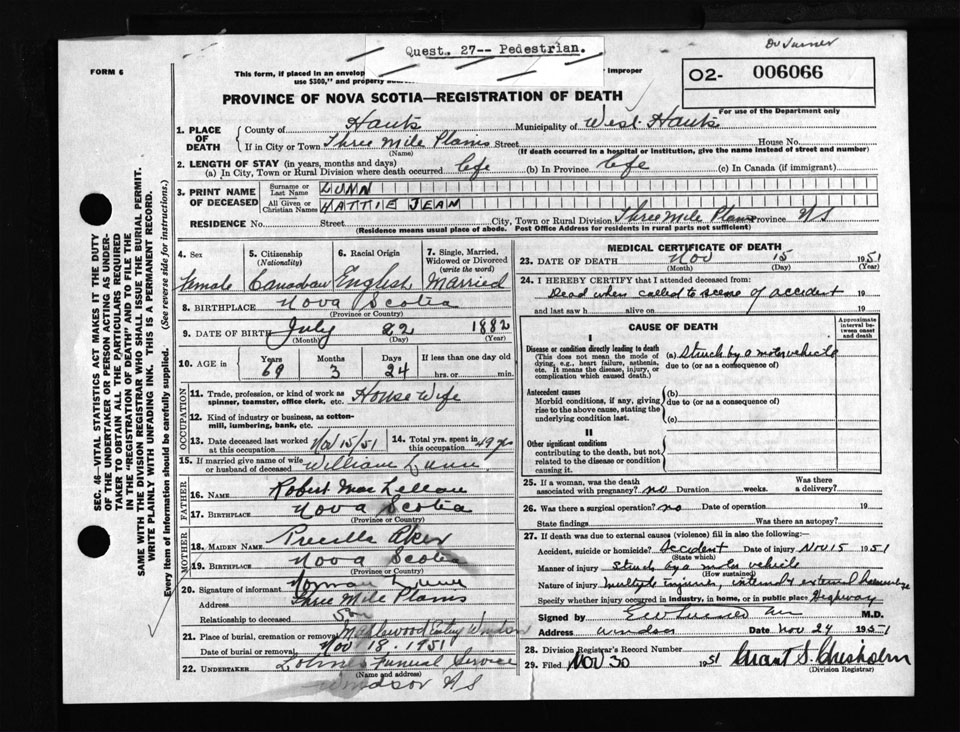 Quest. 27-- Pedestrian.
Dr Turner
FORM 6
This form, if placed in an envelop
improper
use $300," and property
02- 006066
PROVINCE OF NOVA SCOTIA—REGISTRATION OF DEATH
For use of the Department only
1. PLACE OF DEATH
County of Hants Municipality of West Hants
If in City or Town Three Mile Plains Street House No.
(Name) (If death occurred in a hospital or institution, give the name instead of street and number)
2. LENGTH OF STAY (in years, months and days)
(a) In City, Town or Rural Division where death occurred life (b) In Province life (c) In Canada (if immigrant)
3. PRINT NAME OF DECEASED
Surname or Last Name LUNN
All Given or Christian Names HATTIE JEAN
RESIDENCE No. Street City, Town or Rural Division Three Mile Plains Province NS
(Residence means usual place of abode. Post Office Address for residents in rural parts not sufficient)
4. Sex Female
5. Citizenship (Nationality) Canadian
6. Racial Origin English
7. Single, Married, Widowed or Divorced (write the word) Married
8. BIRTHPLACE Nova Scotia
(Province or Country)
9. DATE OF BIRTH July 22 1882
(Month) (Day)
10. AGE in Years 69 Months 3 Days 24 If less than one day old hrs. or min.
OCCUPATION
11. Trade, profession, or kind of work as spinner, teamster, office clerk, etc. House Wife
12. Kind of industry or business, as cotton-mill, lumbering, bank, etc.
13. Date deceased last worked at this occupation Nov 15/51
14. Total yrs. spent in this occupation 49 yrs
15. If married give name of wife or husband of deceased William Lunn
FATHER
16. NAME Robert MacLellan
17. BIRTHPLACE Nova Scotia
(Province or Country)
MOTHER
18. MAIDEN NAME Aker
19. BIRTHPLACE Nova Scotia
(Province or Country)
20. Signature of informant Norman Lunn
Address Three Mile Plains
Relationship to deceased Son
21. Place of burial, cremation or removal Maplewood Windsor
Date of burial or removal Nov 18. 1951
22. UNDERTAKER Funeral Service
(Name and address)
Windsor NS
MEDICAL CERTIFICATE OF DEATH
23. DATE OF DEATH Nov 15 1951
(Month) (Day) (Year)
24. I HEREBY CERTIFY that I attended deceased from:
Dead when called to scene of accident 19
and last saw h alive on 19
CAUSE OF DEATH
Approximate interval between onset and death
I
Disease or condition directly leading to death
(This does not mean the mode of dying, e.g., heart failure, asthenia, etc. It means the disease, injury, or complication which caused death.)
(a) Struck by a motor vehicle
due to (or as a consequence of)
Antecedent causes
Morbid conditions, if any, giving rise to the above cause, stating the underlying condition last.
(b)
due to (or as a consequence of)
(c)
II
Other significant conditions
contributing to the death, but not related to the disease or condition causing it.
25. If a woman, was the death associated with pregnancy? no Duration weeks. Was there a delivery?
26. Was there surgical operation? no Date of operation 19
State findings Was there an autopsy?
27. If death was due to external causes (violence) fill in also the following:
Accident, suicide or homicide? Accident Date of injury Nov 15 1951
(State which)
Manner of injury Struck by a motor vehicle
(How sustained)
Nature of injury multiple injuries, internal & external hemorrhage
Specify whether injury occurred in industry, in home, or in public place Highway
Signed by M.D.
Address Windsor Date Nov 24 1951
28. Division Registrar's Record Number
29. Filed Nov 30 1951 Grant S. Chisholm
(Division Registrar)
SEC. 46—VITAL STATISTICS ACT MAKES IT THE DUTY
OF THE UNDERTAKER OR PERSON ACTING AS UNDER-
TAKER TO OBTAIN ALL THE PARTICULARS REQUIRED
IN THE "REGISTRATION OF DEATH" AND TO FILE THE
SAME WITH THE DIVISION REGISTRAR WHO SHALL ISSUE THE BURIAL PERMIT.
WRITE PLAINLY WITH UNFADING INK. THIS IS A PERMANENT RECORD.
Every item of information should be carefully supplied. (See reverse side for instructions.)